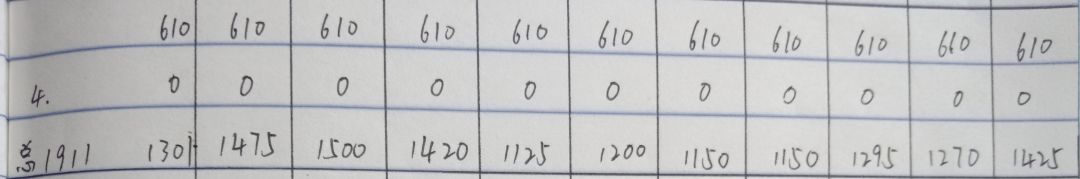 610 610 610 610 610 610 610 610 610 610 610
4. 0 0 0 0 0 0 0 0 0 0 0
总 1911 1301 1475 1500 1420 1125 1200 1150 1150 1295 1270 1425